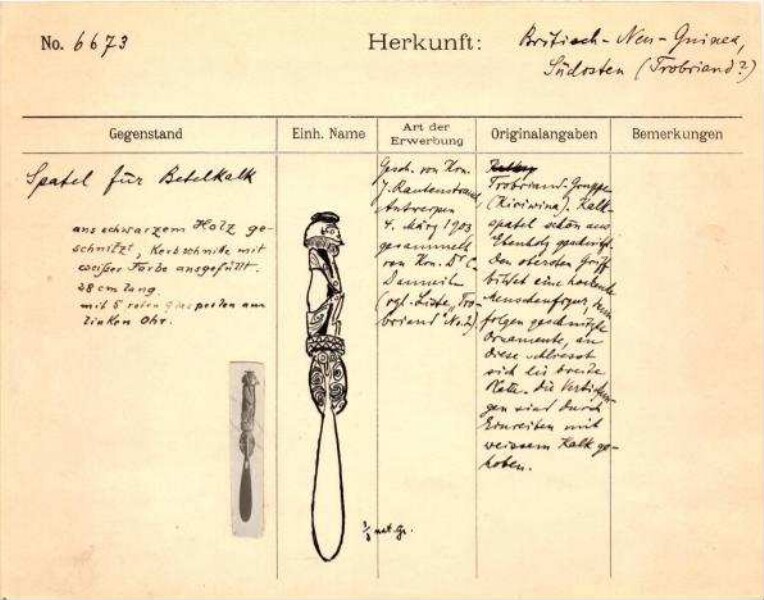 No. 6673
Herkunft: Britisch-Neu-Guinea,
Südosten (Trobriand?)
Gegenstand
Einh. Name
Art der
Erwerbung
Originalangaben
Bemerkungen
Spatel für Betelkalk
aus schwarzem Holz ge-
schnitzt, Kerbschnitte mit
weißer Farbe ausgefüllt.
28 cm lang.
mit 5 roten Glasperlen am
linken Ohr.
1/3 nat. Gr.
Gesch. von Hrn.
J. Rautenstrauch,
Antwerpen
4. März 1903
gesammelt
von Hrn. Dr
(vgl. Liste „Tro-
briand" No. 2).
Trobriand-Gruppe
(Kiriwina). Kalk-
spatel schön aus
Ebenholz geschnitzt.
Den obersten Griff
bildet eine hockende
Menschenfigur,
folgen geschnitzte
Ornamente, an
diese schliesst
sich die breite
Die Vertiefun-
gen sind durch
Einreiben mit
weissem Kalk ge-
hoben.